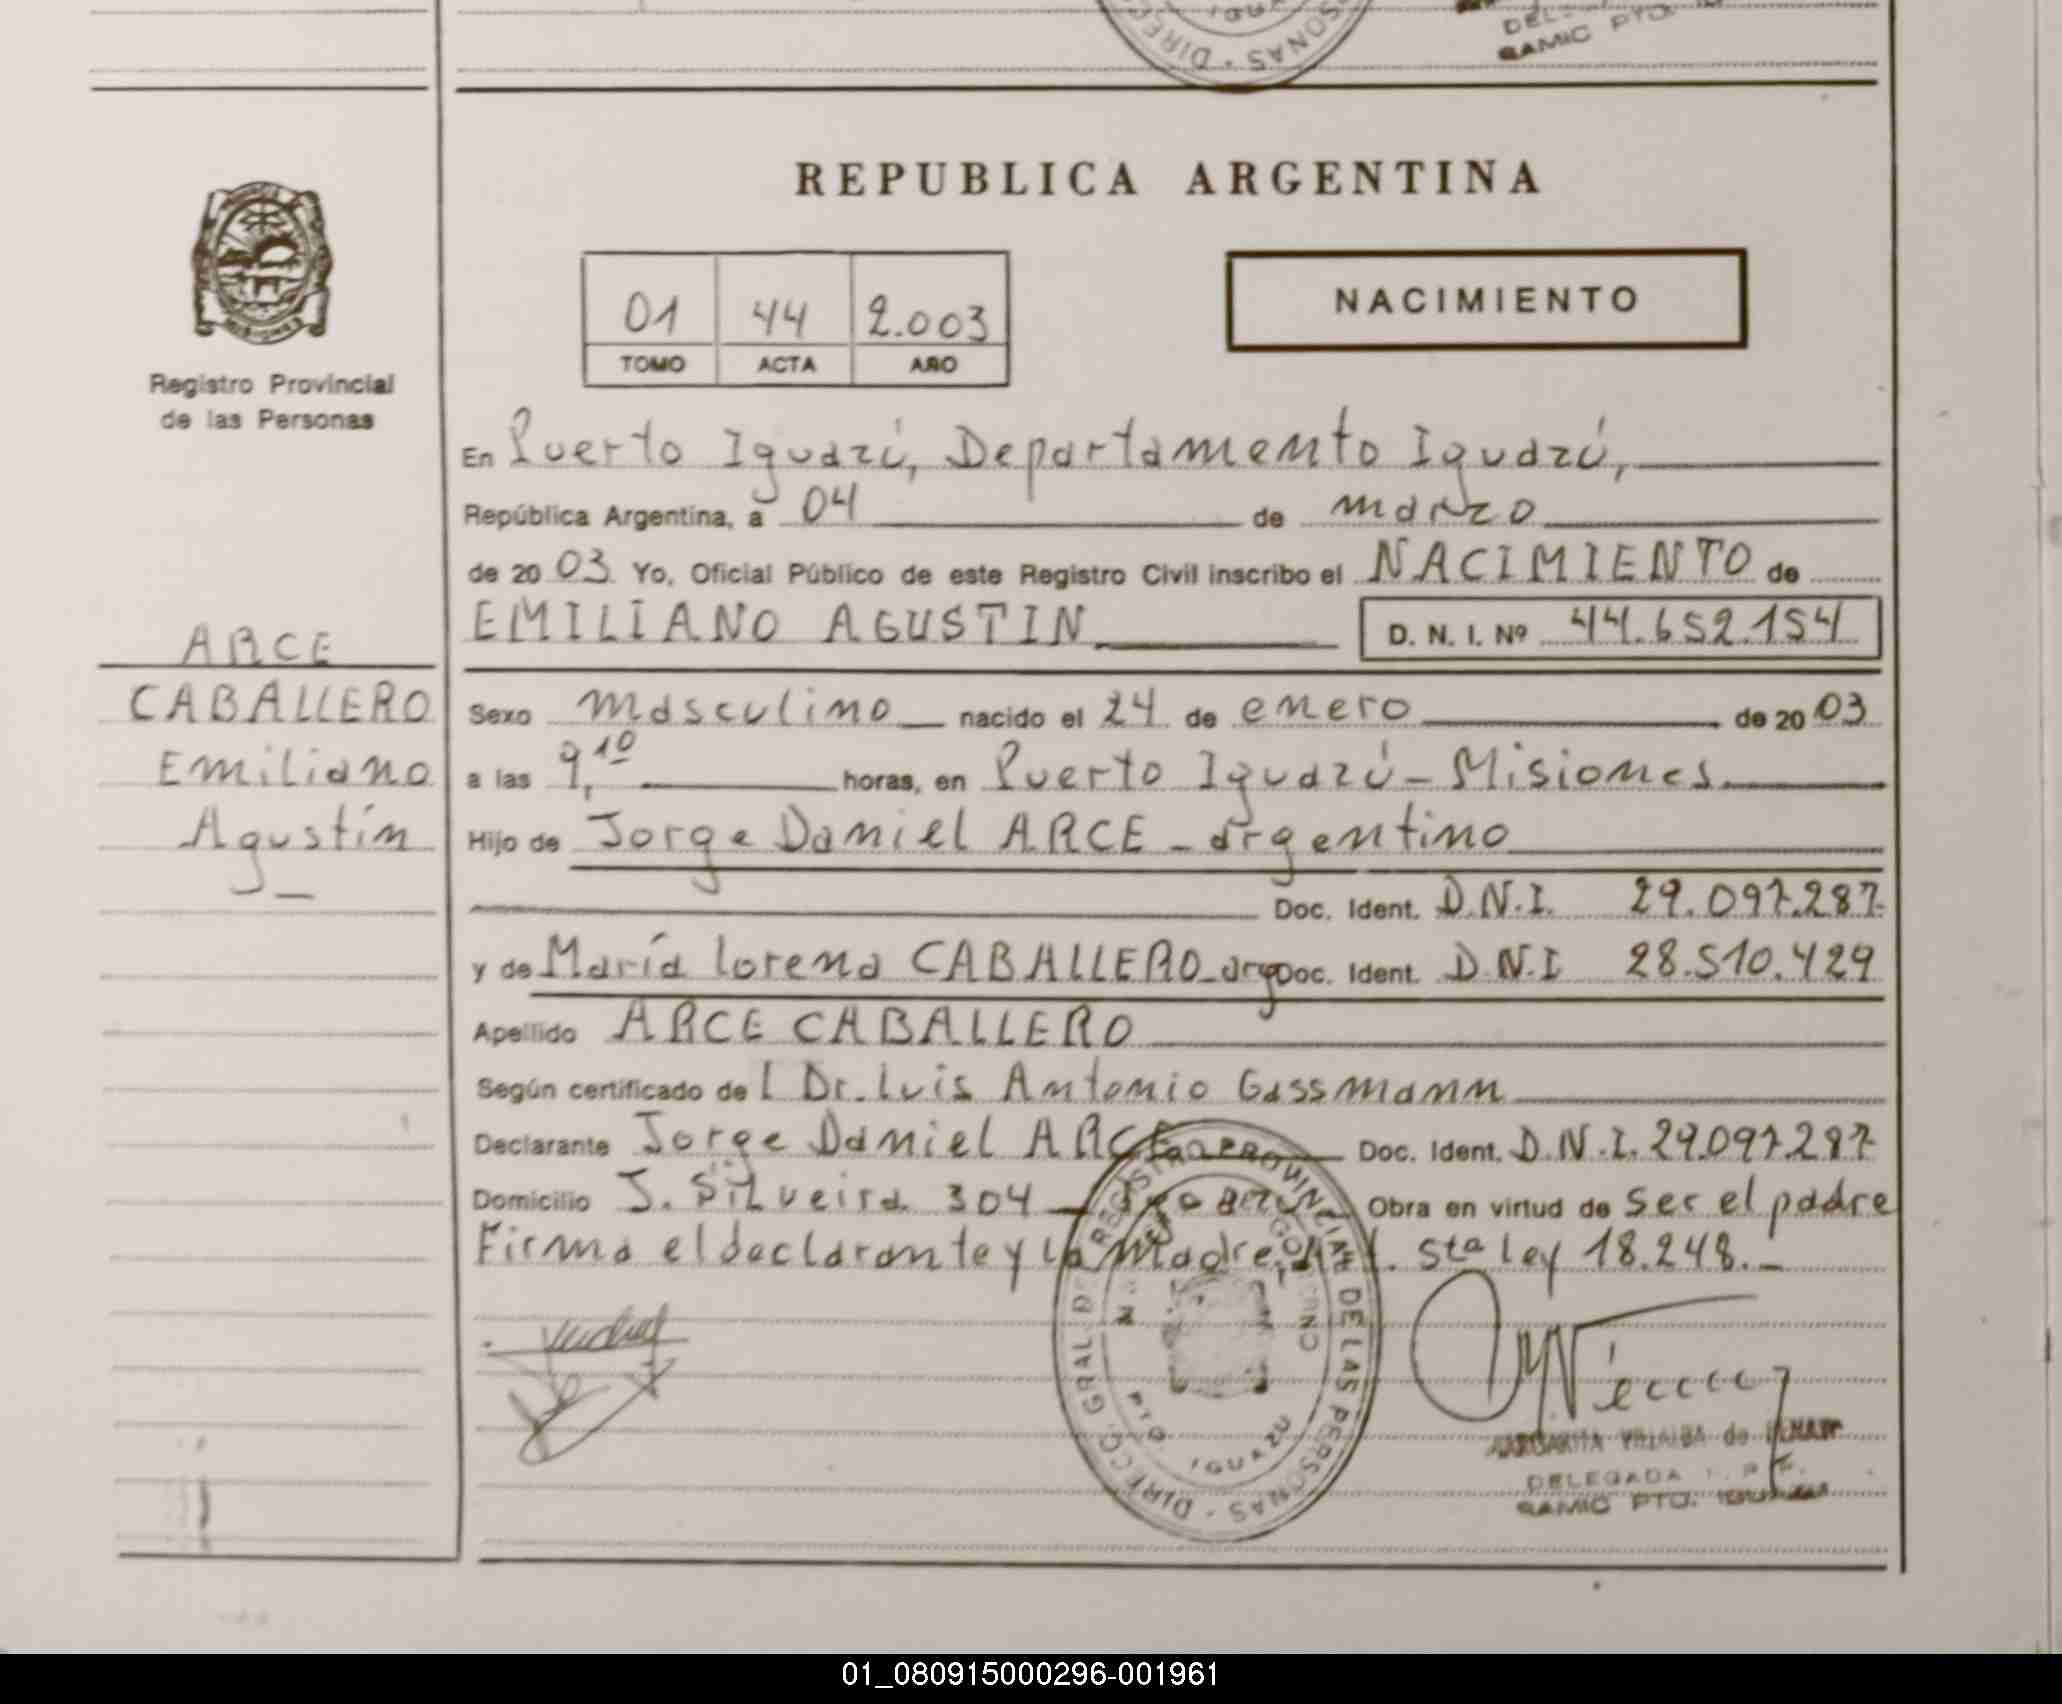 DIRECC
PERSONAS
IGUAZU
SAMIC PTO.
REPUBLICA ARGENTINA
NACIMIENTO
01 44 2.003
TOMO ACTA AÑO
Registro Provincial
de las Personas
En Puerto Iguazú, Departamento Iguazú,
República Argentina, a 04 de marzo
de 20 03 Yo, Oficial Público de este Registro Civil inscribo el NACIMIENTO de
EMILIANO AGUSTIN D. N. I. Nº 44.652.154
ARCE
CABALLERO
Emiliano
Agustín
Sexo masculino nacido el 24 de enero de 20 03
a las 9,10 horas, en Puerto Iguazú - Misiones
Hijo de Jorge Daniel ARCE - argentino
Doc. Ident. D.N.I. 29.097.287
y de María Lorena CABALLERO - arg Doc. Ident. D.N.I 28.510.429
Apellido ARCE CABALLERO
Según certificado de l Dr. Luis Antonio Gassmann
Declarante Jorge Daniel ARCE Doc. Ident. D.N.I. 29.097.287
Domicilio J. Silveira 304 - Obra en virtud de ser el padre
Firma el declarante y la madre. sta ley 18.248. -
DIRECC. GRAL. DEL REGISTRO PROVINCIAL DE LAS PERSONAS
PTO. IGUAZU
MARGARITA VILLALBA de
DELEGADA
SAMIC PTO. IGUAZU
01_080915000296-001961